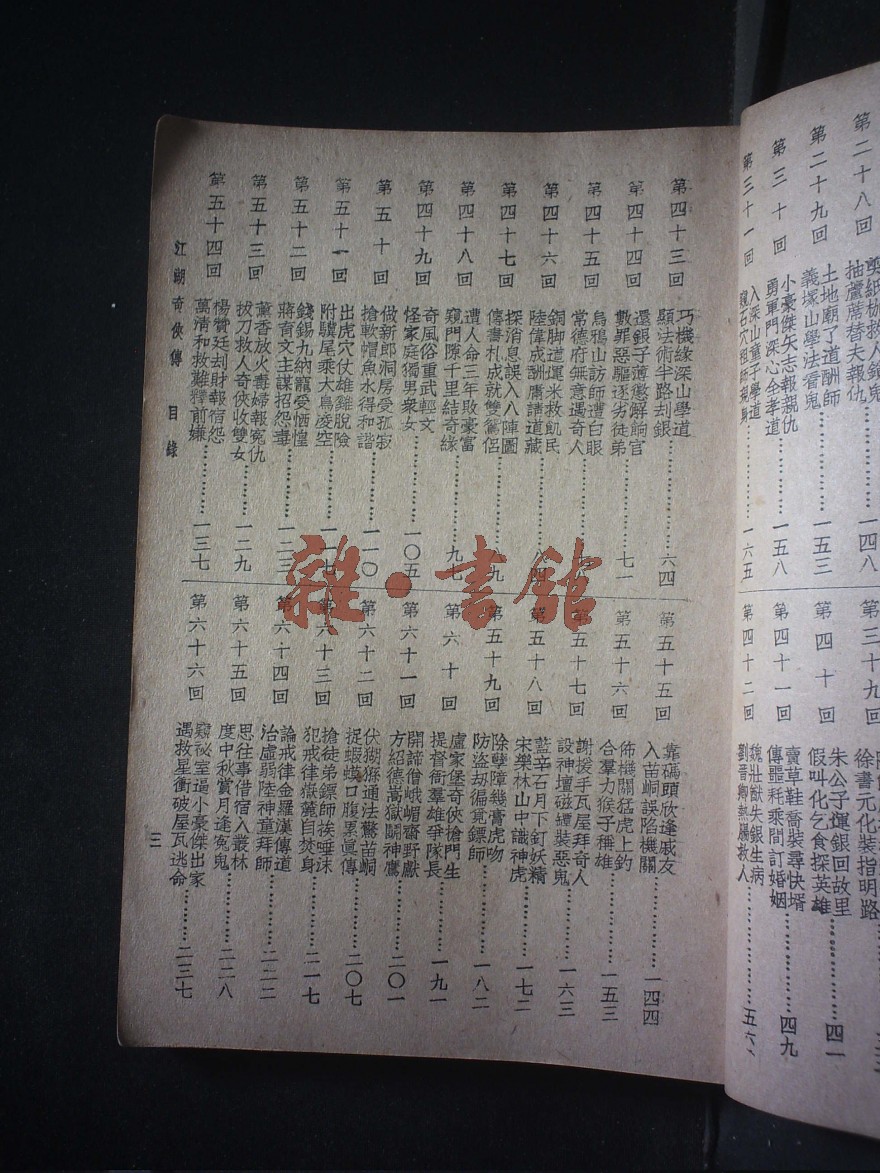 第二十八回
剪紙枷救人鏡鬼
抽蘆蓆替夫報仇……一四八
第二十九回
土地廟了道酬師
義塚山學法看鬼……一五三
第三十回
小豪傑矢志報親仇
勇軍門深心全孝道……一五八
第三十一回
入深山童子學道
窺石穴祖師現身……一六五
第三十九回
徐書元化裝指明路
第四十回
朱公子運銀回故里
假叫化乞食探英雄……四一
第四十一回
賣草鞋喬裝尋快壻
傳噩耗乘間訂婚姻……四九
第四十二回
魏壯猷失銀生病
劉晉卿熱腸救人……五六
第四十三回
巧機緣深山學道
顯法術半路刦銀……六四
第四十四回
還銀子薄懲解餉官
數罪惡驅逐劣徒弟……七一
第四十五回
烏鴉山訪師遭白眼
常德府無意遇奇人
第四十六回
銅脚道運米救飢民
陸偉成酬庸請道藏……八四
第四十七回
探消息誤入八陣圖
傳書札成就雙鴛侶……九
第四十八回
遭人命三年敗豪富
窺門隙千里結奇緣……九七
第四十九回
奇風俗重武輕文
怪家庭獨男衆女……一〇五
第五十回
做新郎洞房受孤寂
搶軟帽魚水得和諧……一一〇
第五十一回
出虎穴仗雄雞脫險
附驥尾乘大鳥凌空……一一七
第五十二回
錢錫九納寵受恓惶
蔣育文主謀招怨毒……一二三
第五十三回
薰香放火毒婦報冤仇
拔刀救人奇俠收雙女……一二九
第五十四回
楊贊廷刦財報宿怨
萬清和救難釋前嫌……一三七
第五十五回
靠碼頭欣逢戚友
入苗峒誤陷機關……一四四
第五十六回
佈機關猛虎上鈎
合羣力猴子稱雄……一五三
第五十七回
謝援手瓦屋拜奇人
設神壇磁罎裝惡鬼……一六三
第五十八回
藍辛石月下釘妖精
宋樂林山中識神虎……一七二
第五十九回
除孽障幾膏虎吻
防盜刦徧覓鏢師……一八二
第六十回
盧家堡奇俠搶門生
提督衙羣雄爭隊長……一九一
第六十一回
開諦僧峨嵋齋野獸
方紹德嵩嶽鬭神鷹……二〇一
第六十二回
伏猢猻通法驚苗峒
捉蝦蟆口腹累眞傳……二〇七
第六十三回
搶徒弟鏢師挨唾沫
犯戒律嶽麓自焚身……二一七
第六十四回
論戒律金羅漢傳道
治虛弱陸神童拜師……二二二
第六十五回
思往事借宿入叢林
度中秋賞月逢冤鬼……二二八
第六十六回
窺祕室逼小豪傑出家
遇救星衝破屋瓦逃命……二三七
江湖奇俠傳 目錄
三
雜·書館